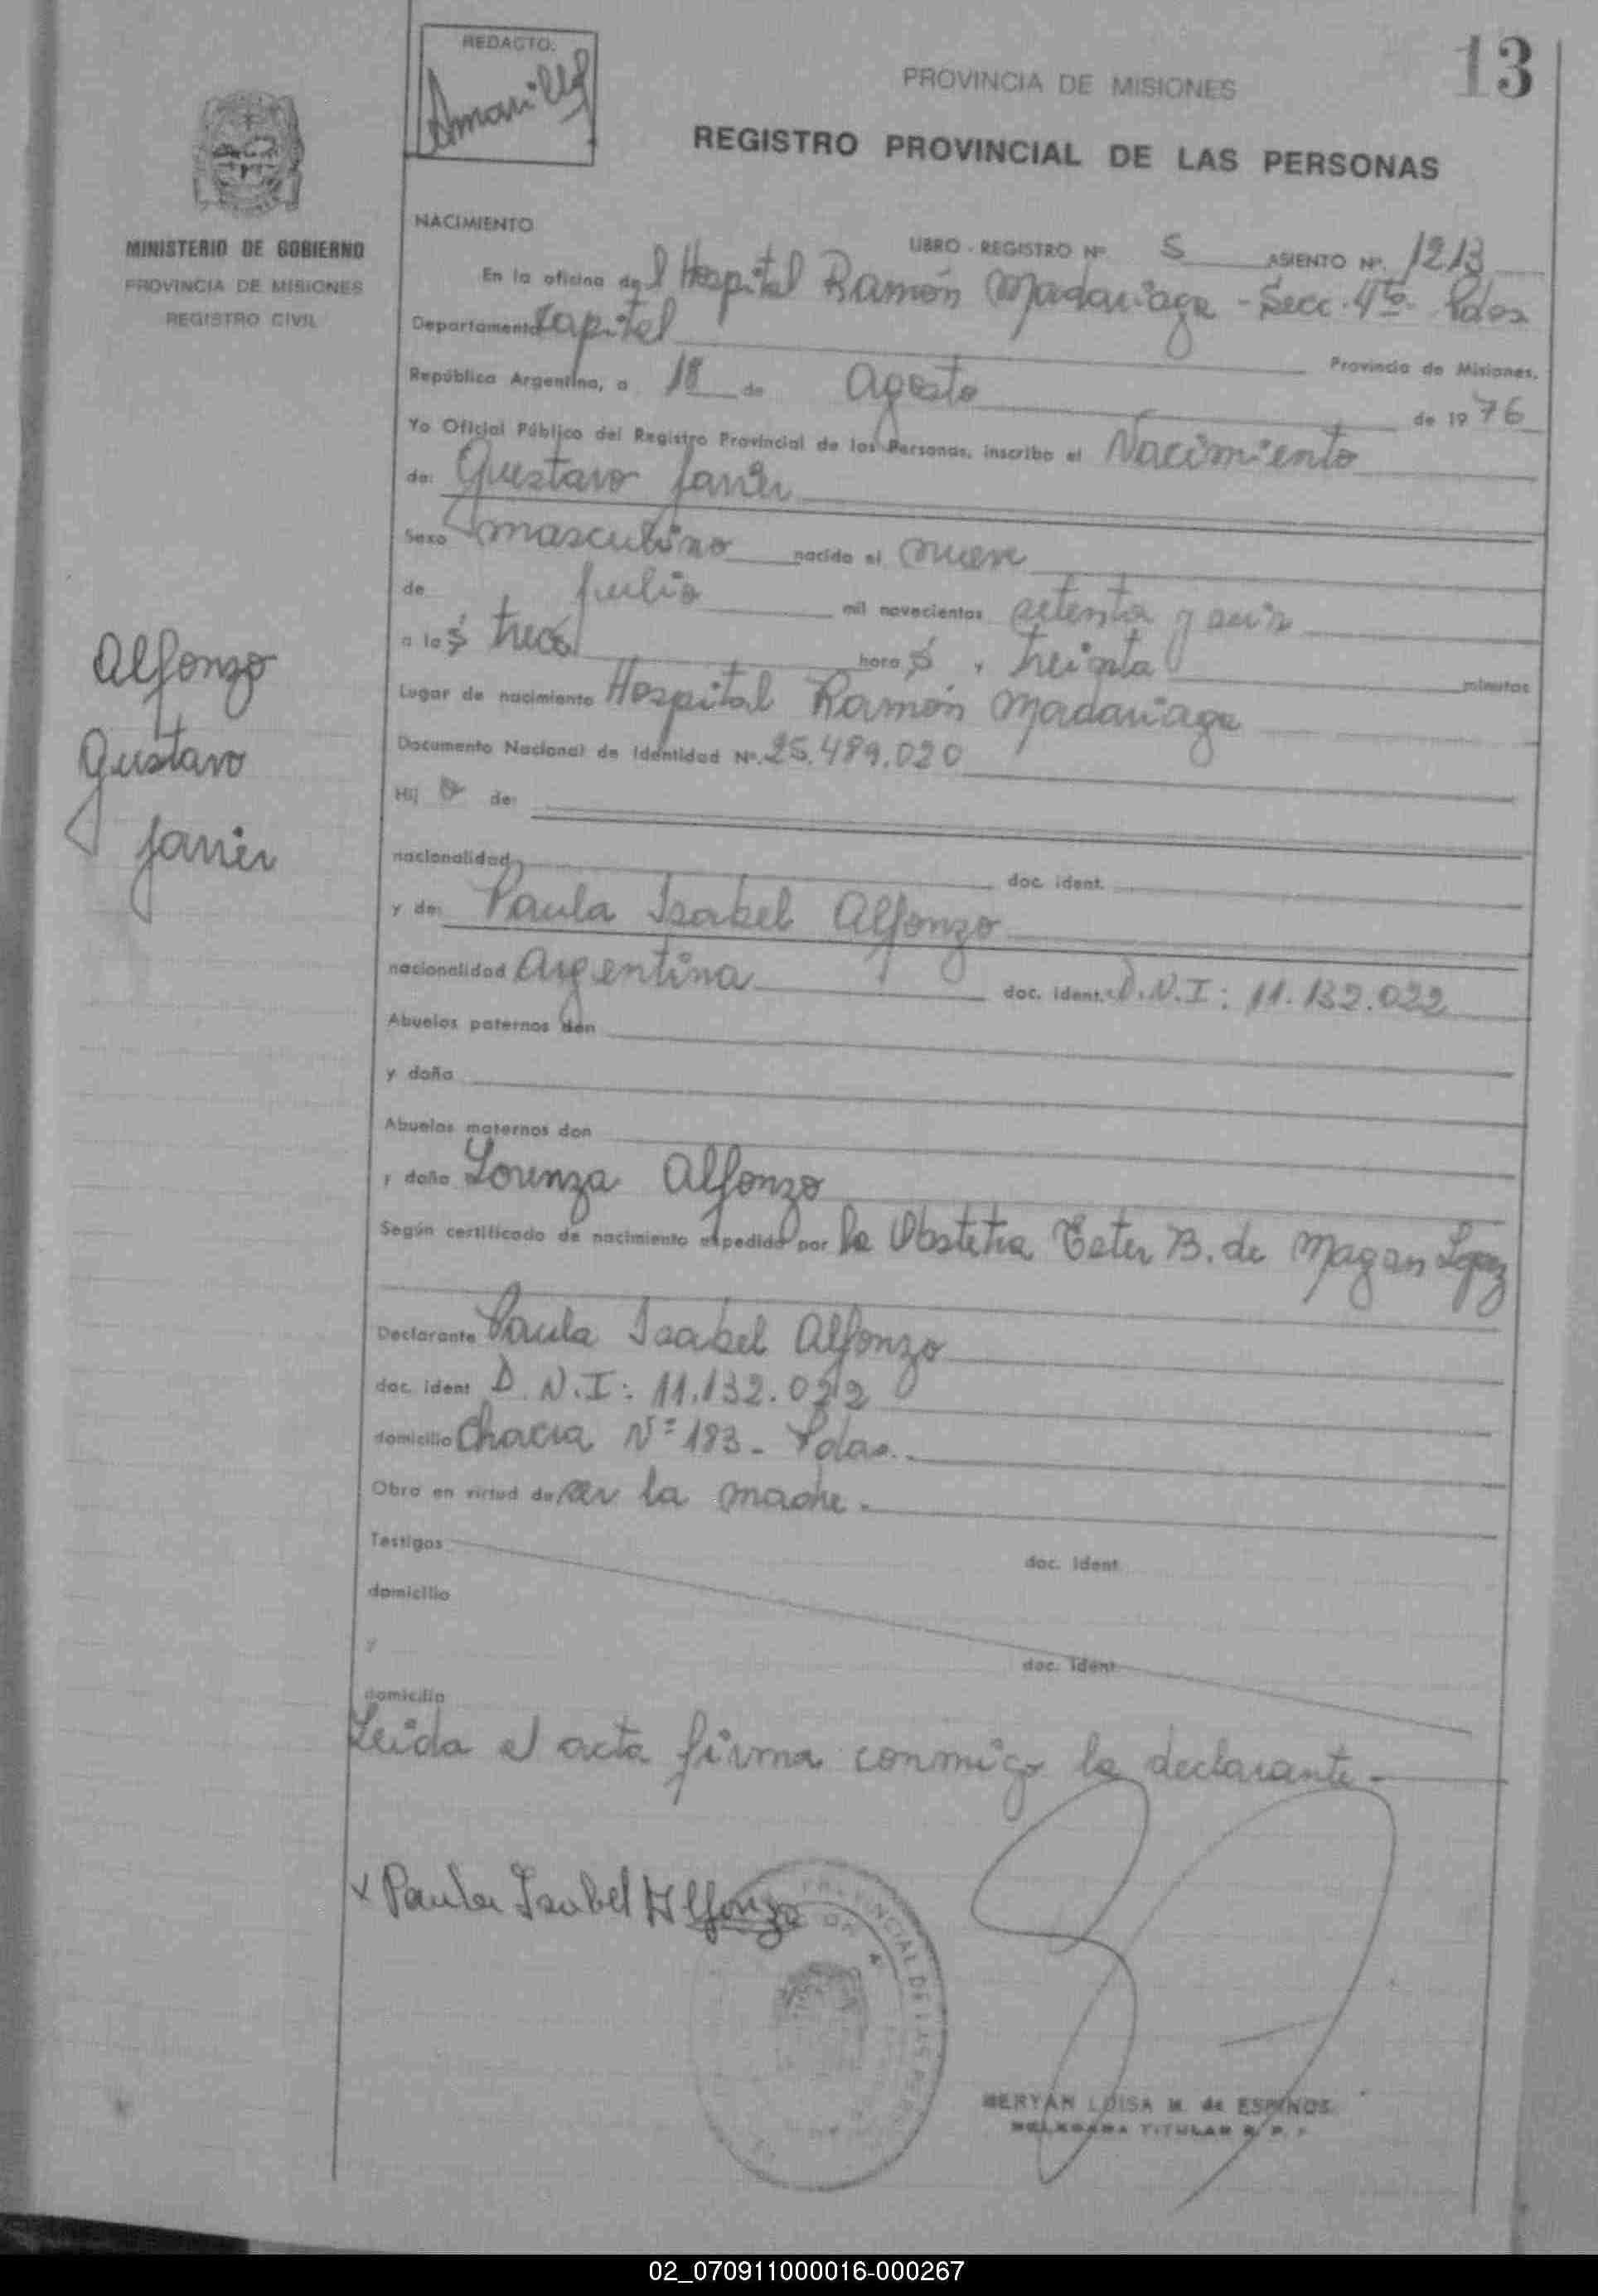 REDACTO:
Amarilla
13
PROVINCIA DE MISIONES
REGISTRO PROVINCIAL DE LAS PERSONAS
MINISTERIO DE GOBIERNO
PROVINCIA DE MISIONES
REGISTRO CIVIL
NACIMIENTO
LIBRO - REGISTRO Nº 5 ASIENTO Nº. 1213
En la oficina del Hospital Ramón Madariaga - Secc. 4ta. Pdas
Departamento Capital Provincia de Misiones.
República Argentina, a 18 de Agosto de 1976
Yo Oficial Público del Registro Provincial de las Personas, inscribo el Nacimiento
de: Gustavo Javier
Sexo masculino nacido el nueve
de Julio mil novecientos setenta y seis
a las trece horas, treinta minutos
Lugar de nacimiento Hospital Ramón Madariaga
Documento Nacional de Identidad Nº. 25.489.020
Hijo de:
nacionalidad doc. ident.
y de: Paula Isabel Alfonzo
nacionalidad Argentina doc. ident. D.N.I: 11.132.022
Abuelos paternos don
y doña
Abuelos maternos don
y doña Lorenza Alfonzo
Según certificado de nacimiento expedido por la Obstetra Ester B. de Magan Lopez
Declarante Paula Isabel Alfonzo
doc. ident D.N.I: 11.132.022
domicilio Chacra Nº 183 - Pdas.
Obra en virtud de ser la madre.
Testigos doc. ident.
domicilio
y doc. ident
domicilio
Leida el acta firma conmigo la declarante -
Alfonzo
Gustavo
Javier
x Paula Isabel Alfonzo
MERYAN LUISA M. de ESPINOS
DELEGADA TITULAR R. P. P
02_070911000016-000267